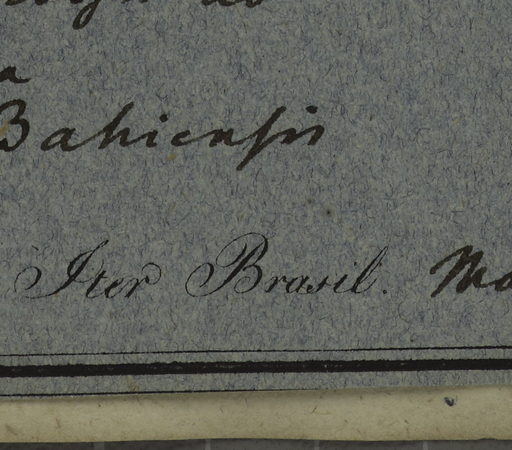 a
Bahiensis
Iter Brasil. Ma